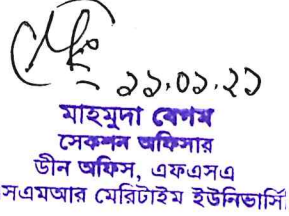 ২১.০১.২১
মাহমুদা বেগম
সেকশন অফিসার
ডীন অফিস, এফএসএ
সএমআর মেরিটাইম ইউনিভার্সি